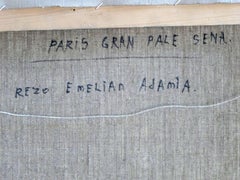 PARIS GRAN PALE SENA.
REZO EMELIAN ADAMIA.